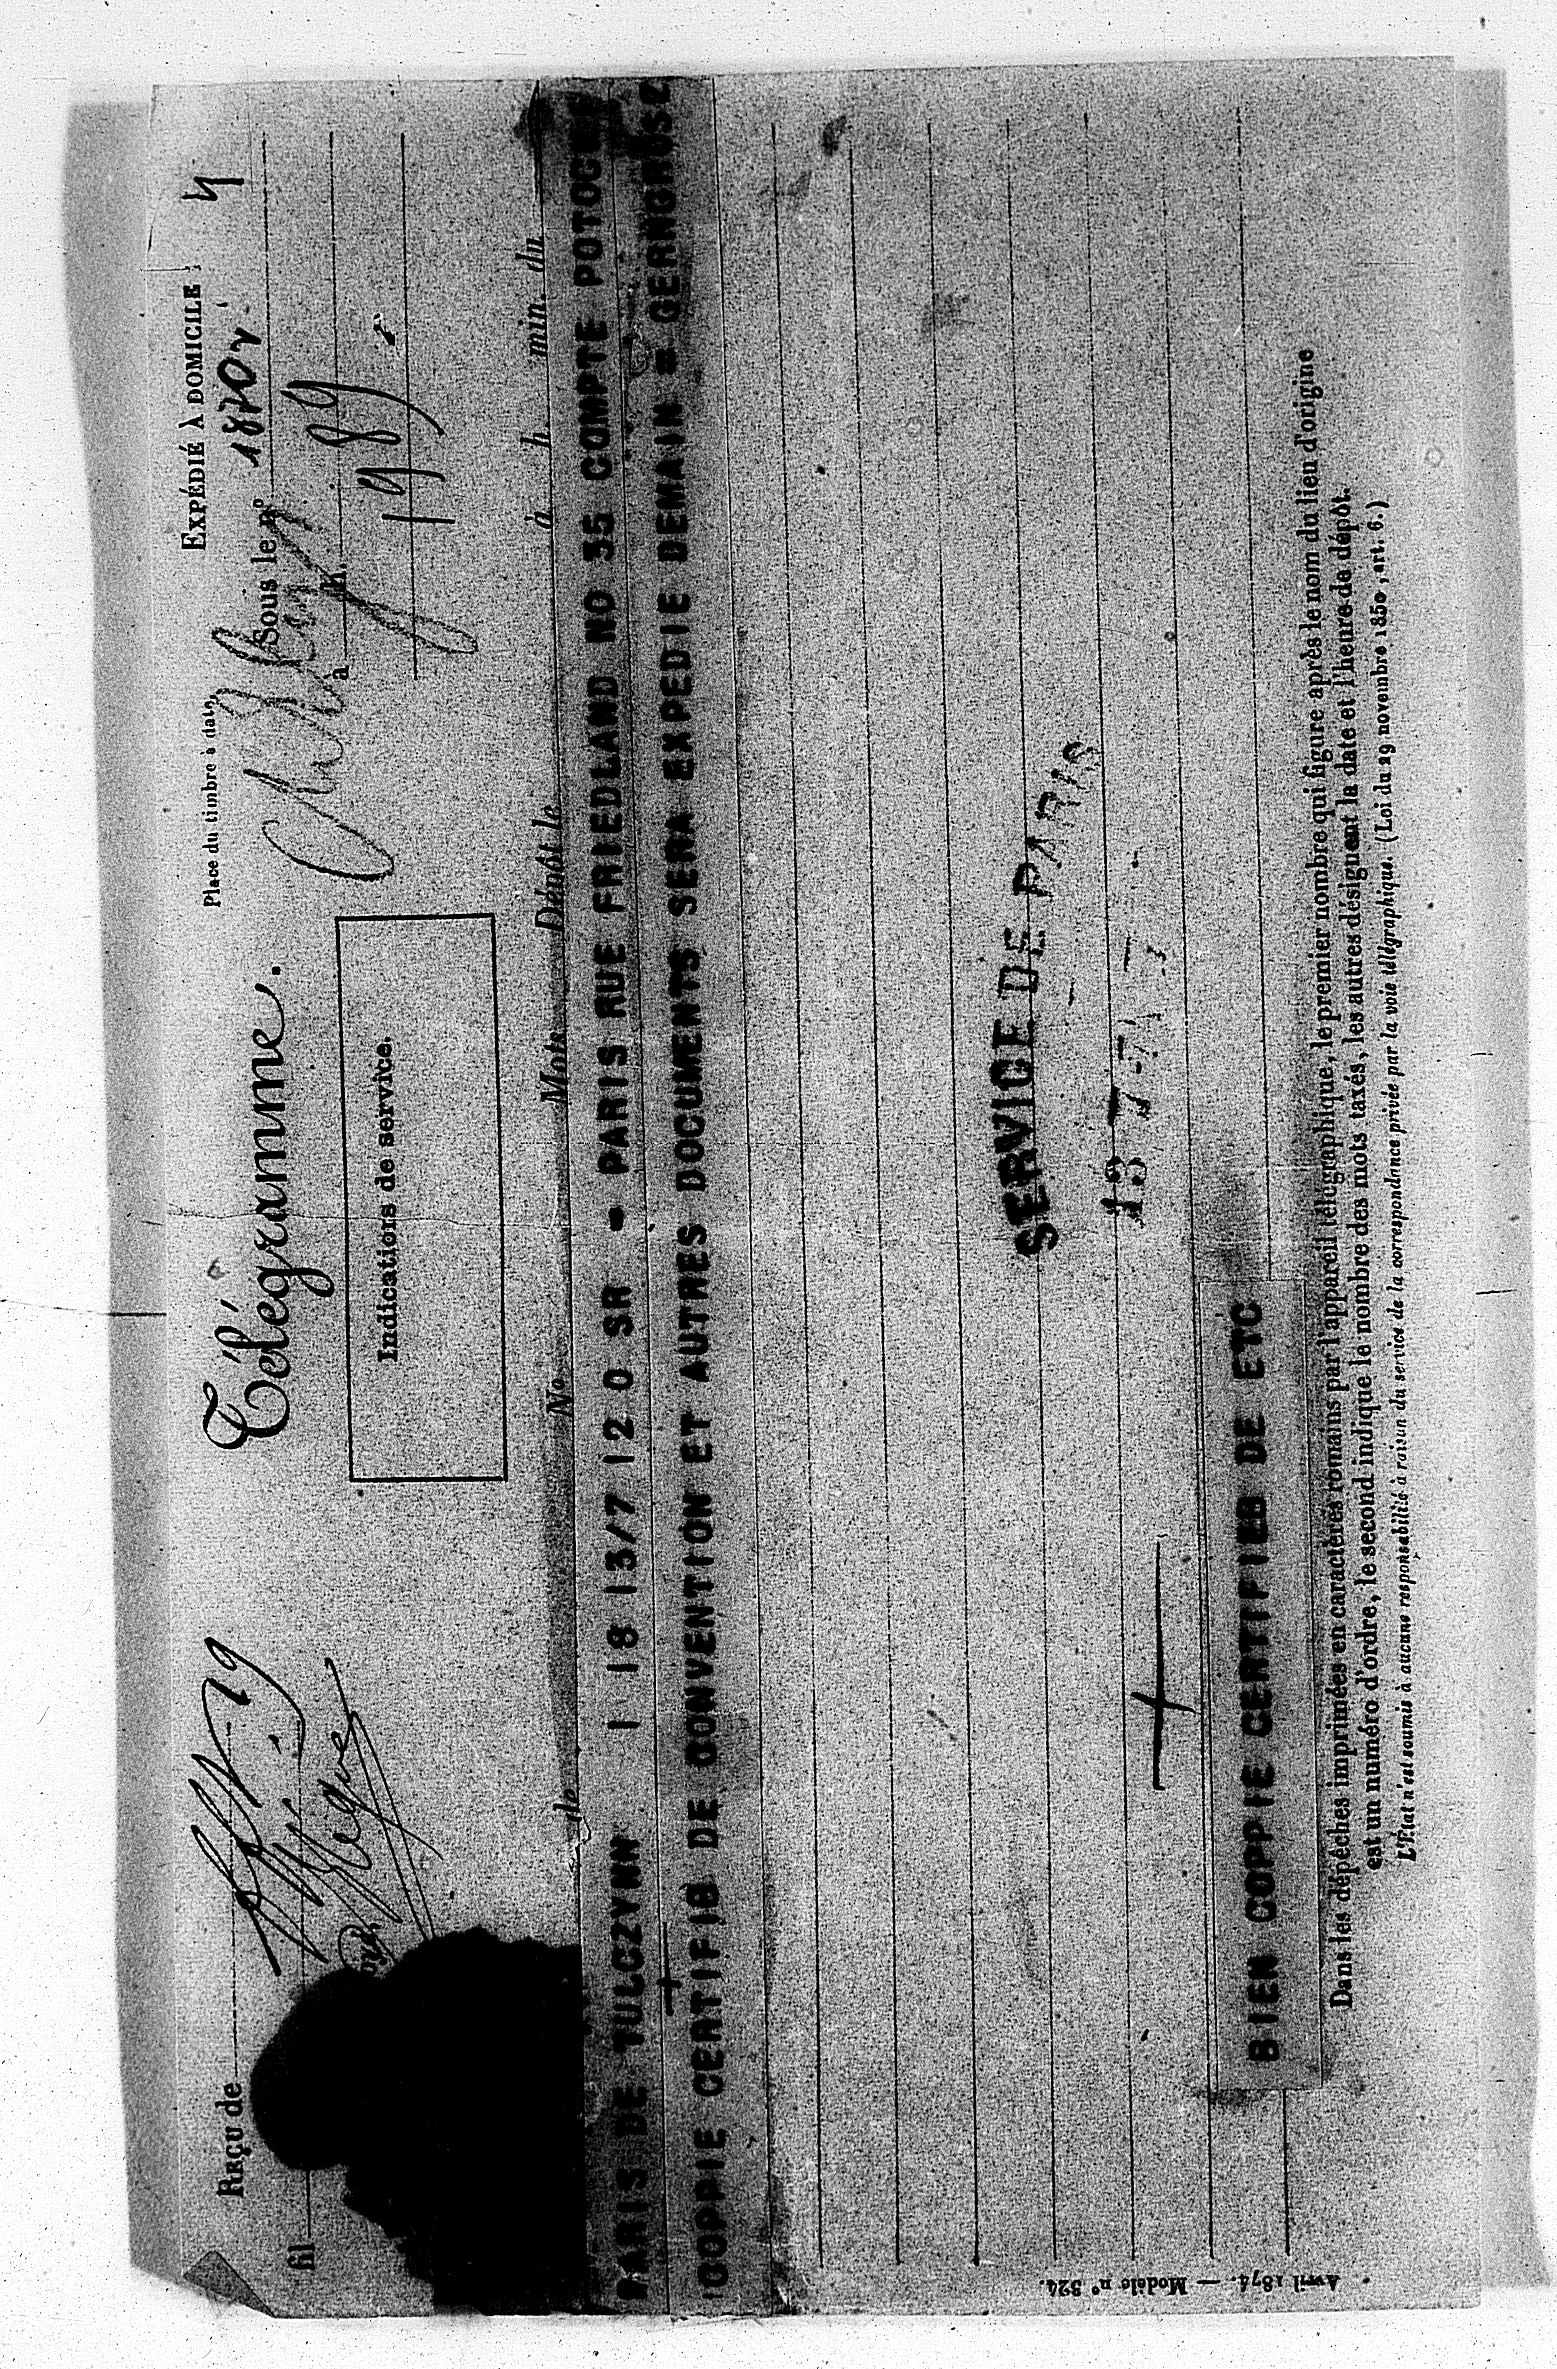 Télégramme.
Reçu de
fil
Indications de service.
Place du timbre à date,
EXPÉDIÉ À DOMICILE :
4
Sous le n° 18702
à h.
1989
de N° Mots Dépôt le à h min. du
PARIS DE TULCZYNN 1 18 13/7 12 0 SR = PARIS RUE FRIEDLAND NO 35 COMPTE
COPPIE CERTIFIB DE CONVENTION ET AUTRES DOCUMENTS SERA EXPEDIE DEMAIN =
SERVICE DE PARIS
BIEN COPPIE CERTIFIEB DE ETC
Dans les dépêches imprimées en caractères romains par l'appareil télégraphique, le premier nombre qui figure après le nom du lieu d'origine
est un numéro d'ordre, le second indique le nombre des mots taxés, les autres désignent la date et l'heure de dépôt.
L'État n'est soumis à aucune responsabilité à raison du service de la correspondance privée par la voie télégraphique. (Loi du 29 novembre 1850, art. 6.)
Avril 1874. — Modèle n° 324.